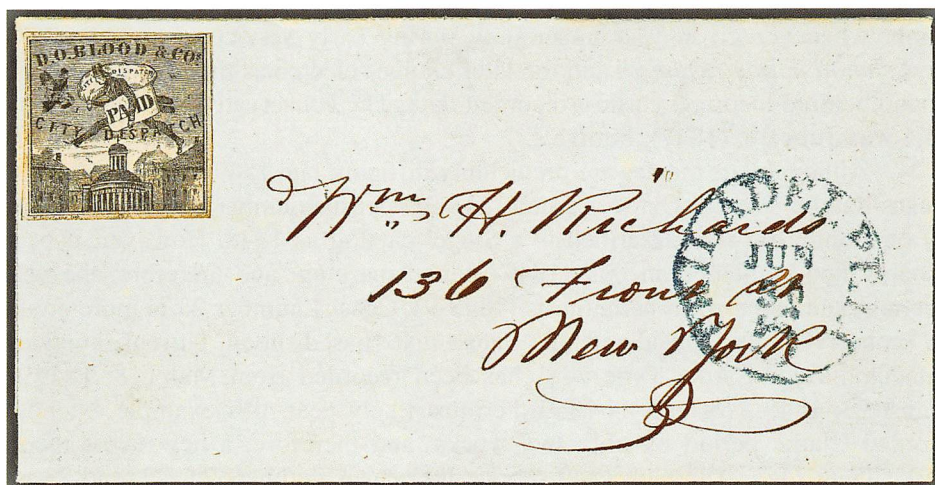 D.O. BLOOD & CO'S
CITY DISPATCH
PAID
CITY DISPATCH
Wm H. Richards
136 Front St
New York
PHILADELPHIA
JUN